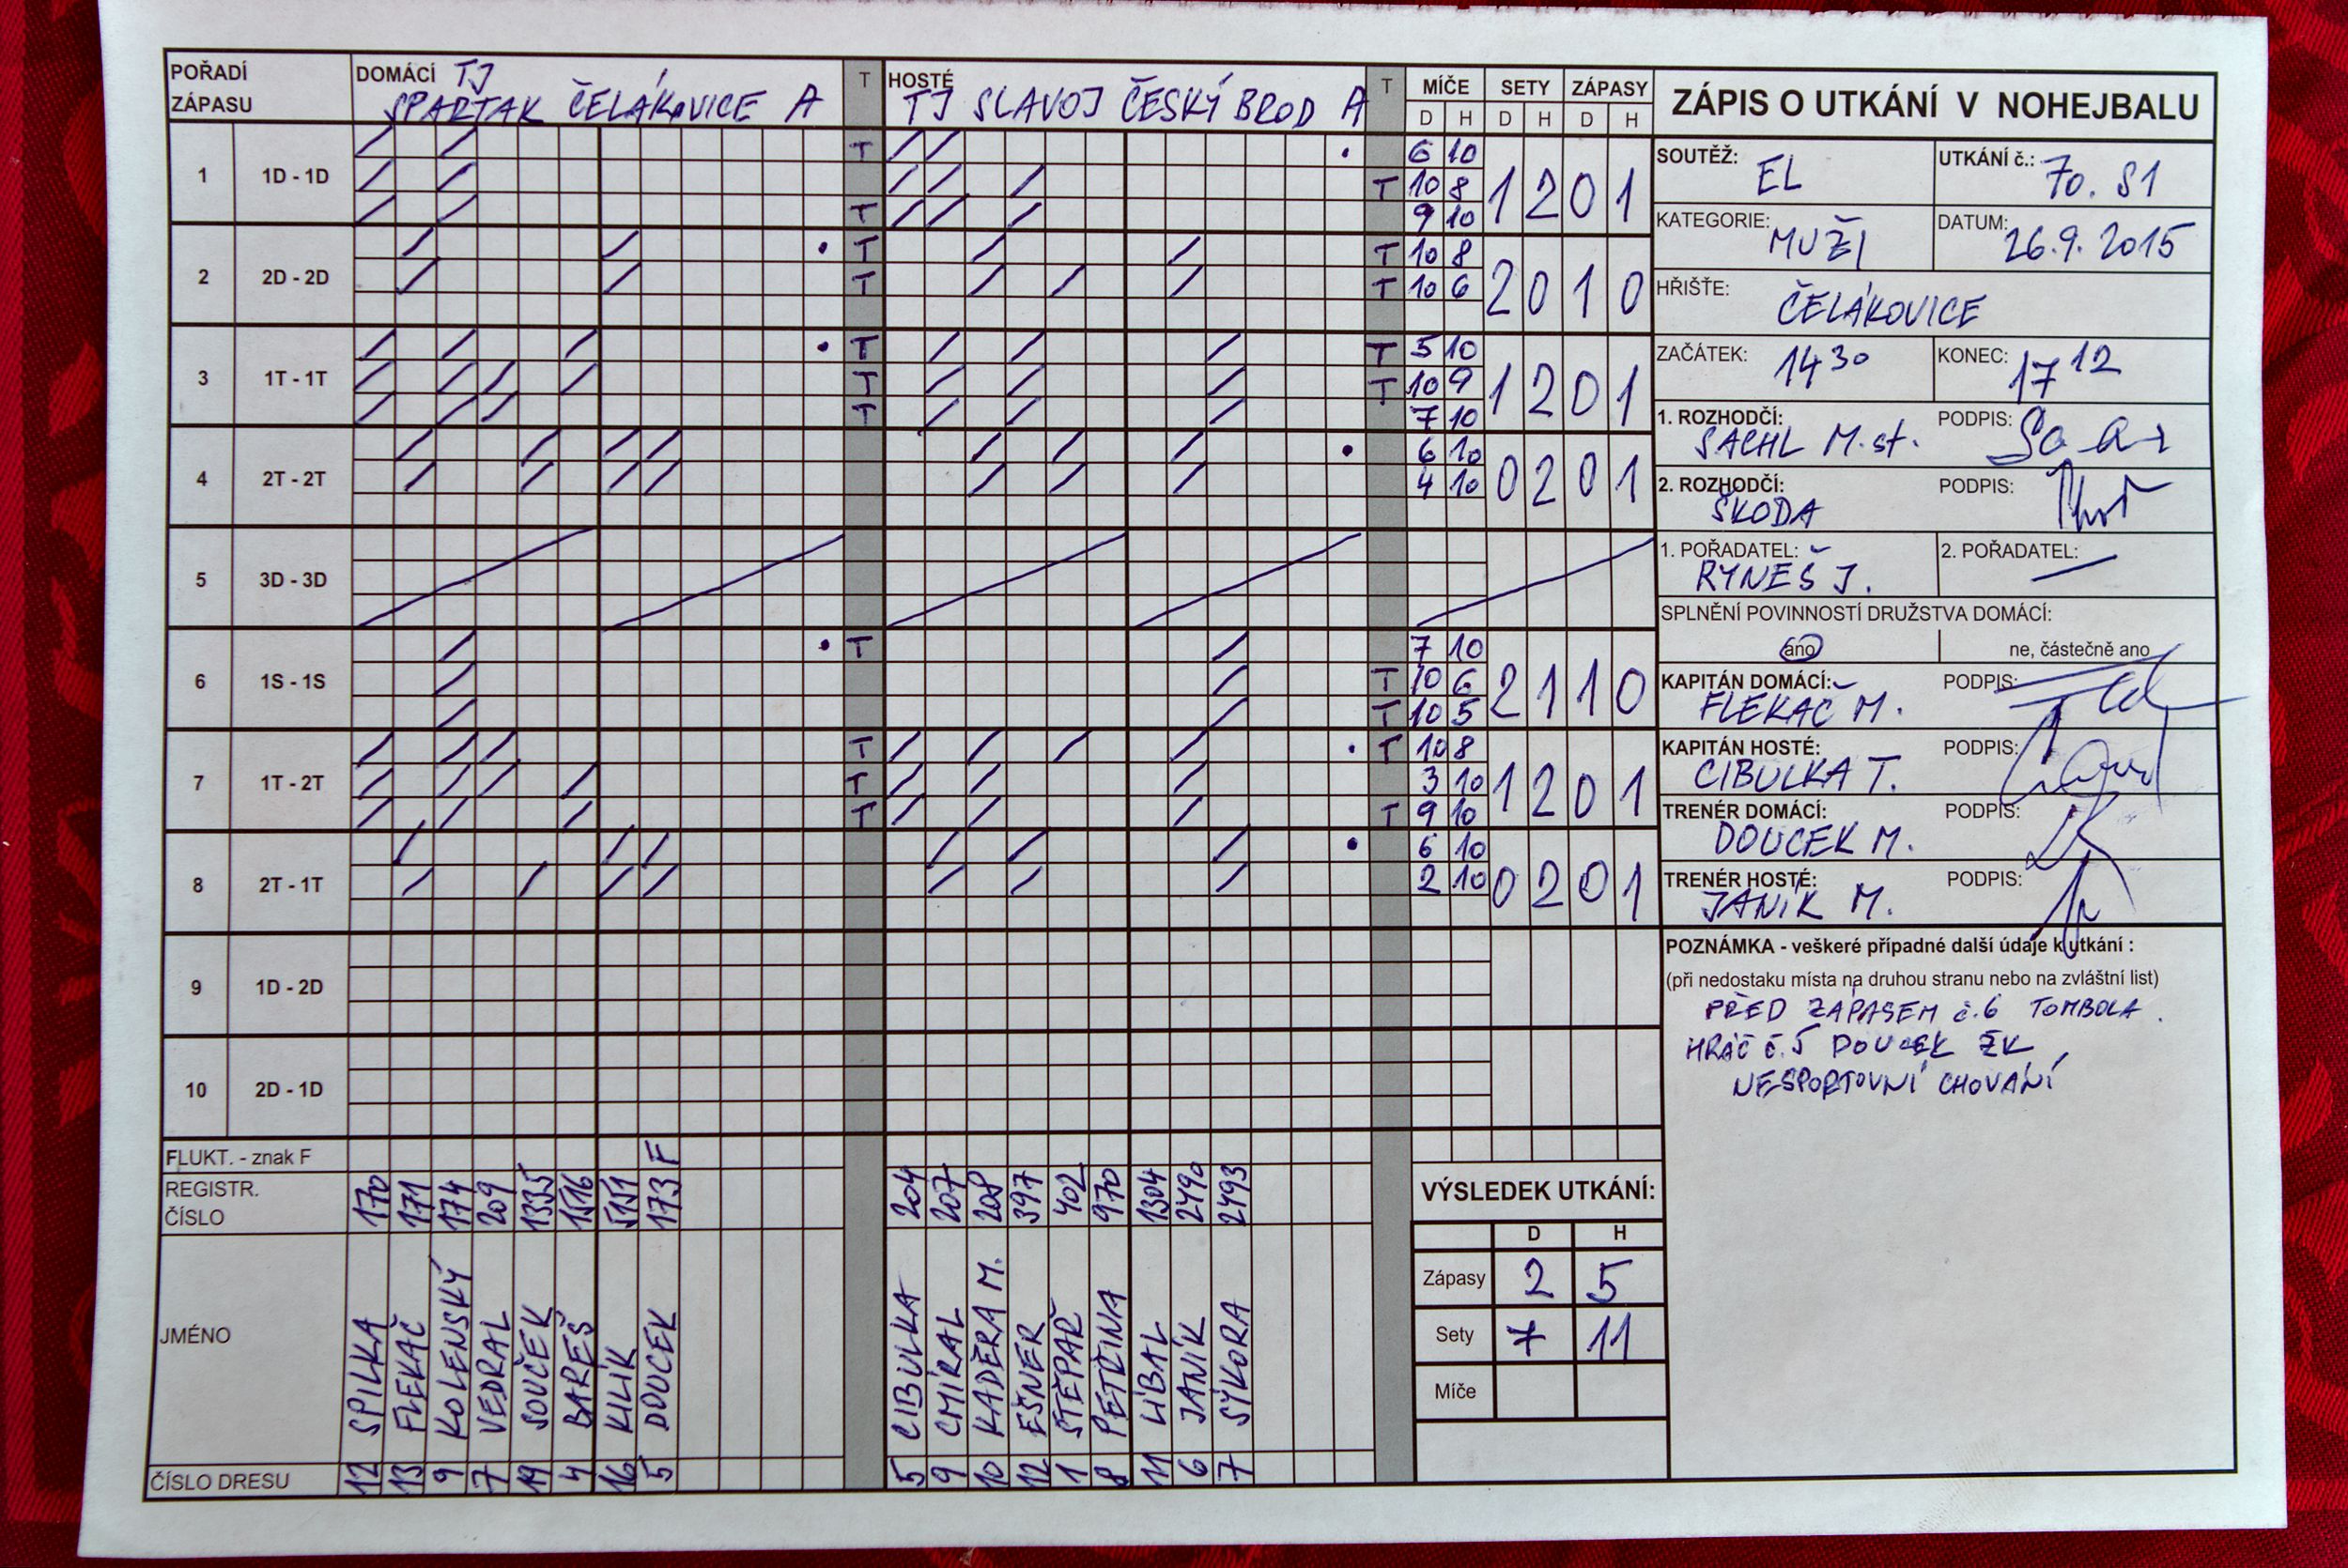 POŘADÍ ZÁPASU
DOMÁCÍ TJ
SPARTAK ČELÁKOVICE A
T
HOSTÉ
TJ SLAVOJ ČESKÝ BROD A
T
MÍČE SETY ZÁPASY
D H D H D H
1 1D - 1D T 6 10
T 10 8 1 2 0 1
T 9 10
2 2D - 2D T T 10 8
T T 10 6 2 0 1 0
3 1T - 1T T T 5 10
T T 10 9 1 2 0 1
T 7 10
4 2T - 2T 6 10
4 10 0 2 0 1
5 3D - 3D
6 1S - 1S T 7 10
T 10 6 2 1 1 0
T 10 5
7 1T - 2T T T 10 8
T 3 10 1 2 0 1
T T 9 10
8 2T - 1T 6 10
2 10 0 2 0 1
9 1D - 2D
10 2D - 1D
FLUKT. - znak F F
REGISTR. ČÍSLO 170 171 174 209 1335 1516 5151 173 204 207 208 397 402 970 1304 2490 2493
JMÉNO SPILKA FLEKAČ KOLENSKÝ VEDRAL SOUČEK BAREŠ KILIK DOUCEK CIBULKA CMÍRAL KADĚRA M. EŠNER ŠTĚPAŘ PETŘINA LIBAL JANÍK SÝKORA
ČÍSLO DRESU 12 13 9 7 19 4 16 5 5 9 10 12 1 8 11 6 7
VÝSLEDEK UTKÁNÍ:
D H
Zápasy 2 5
Sety 7 11
Míče
ZÁPIS O UTKÁNÍ V NOHEJBALU
SOUTĚŽ: EL UTKÁNÍ č.: 70. S1
KATEGORIE: MUŽI DATUM: 26.9.2015
HŘIŠTĚ: ČELÁKOVICE
ZAČÁTEK: 14 30 KONEC: 17 12
1. ROZHODČÍ: SACHL M. st. PODPIS:
2. ROZHODČÍ: ŠKODA PODPIS:
1. POŘADATEL: RYNEŠ J. 2. POŘADATEL: —
SPLNĚNÍ POVINNOSTÍ DRUŽSTVA DOMÁCÍ:
ano ne, částečně ano
KAPITÁN DOMÁCÍ: FLEKAČ M. PODPIS:
KAPITÁN HOSTÉ: CIBULKA T. PODPIS:
TRENÉR DOMÁCÍ: DOUCEK M. PODPIS:
TRENÉR HOSTÉ: JANÍK M. PODPIS:
POZNÁMKA - veškeré případné další údaje k utkání :
(při nedostaku místa na druhou stranu nebo na zvláštní list)
PŘED ZÁPASEM č.6 TOMBOLA.
HRÁČ č.5 DOUCEK ŽK
NESPORTOVNÍ CHOVÁNÍ